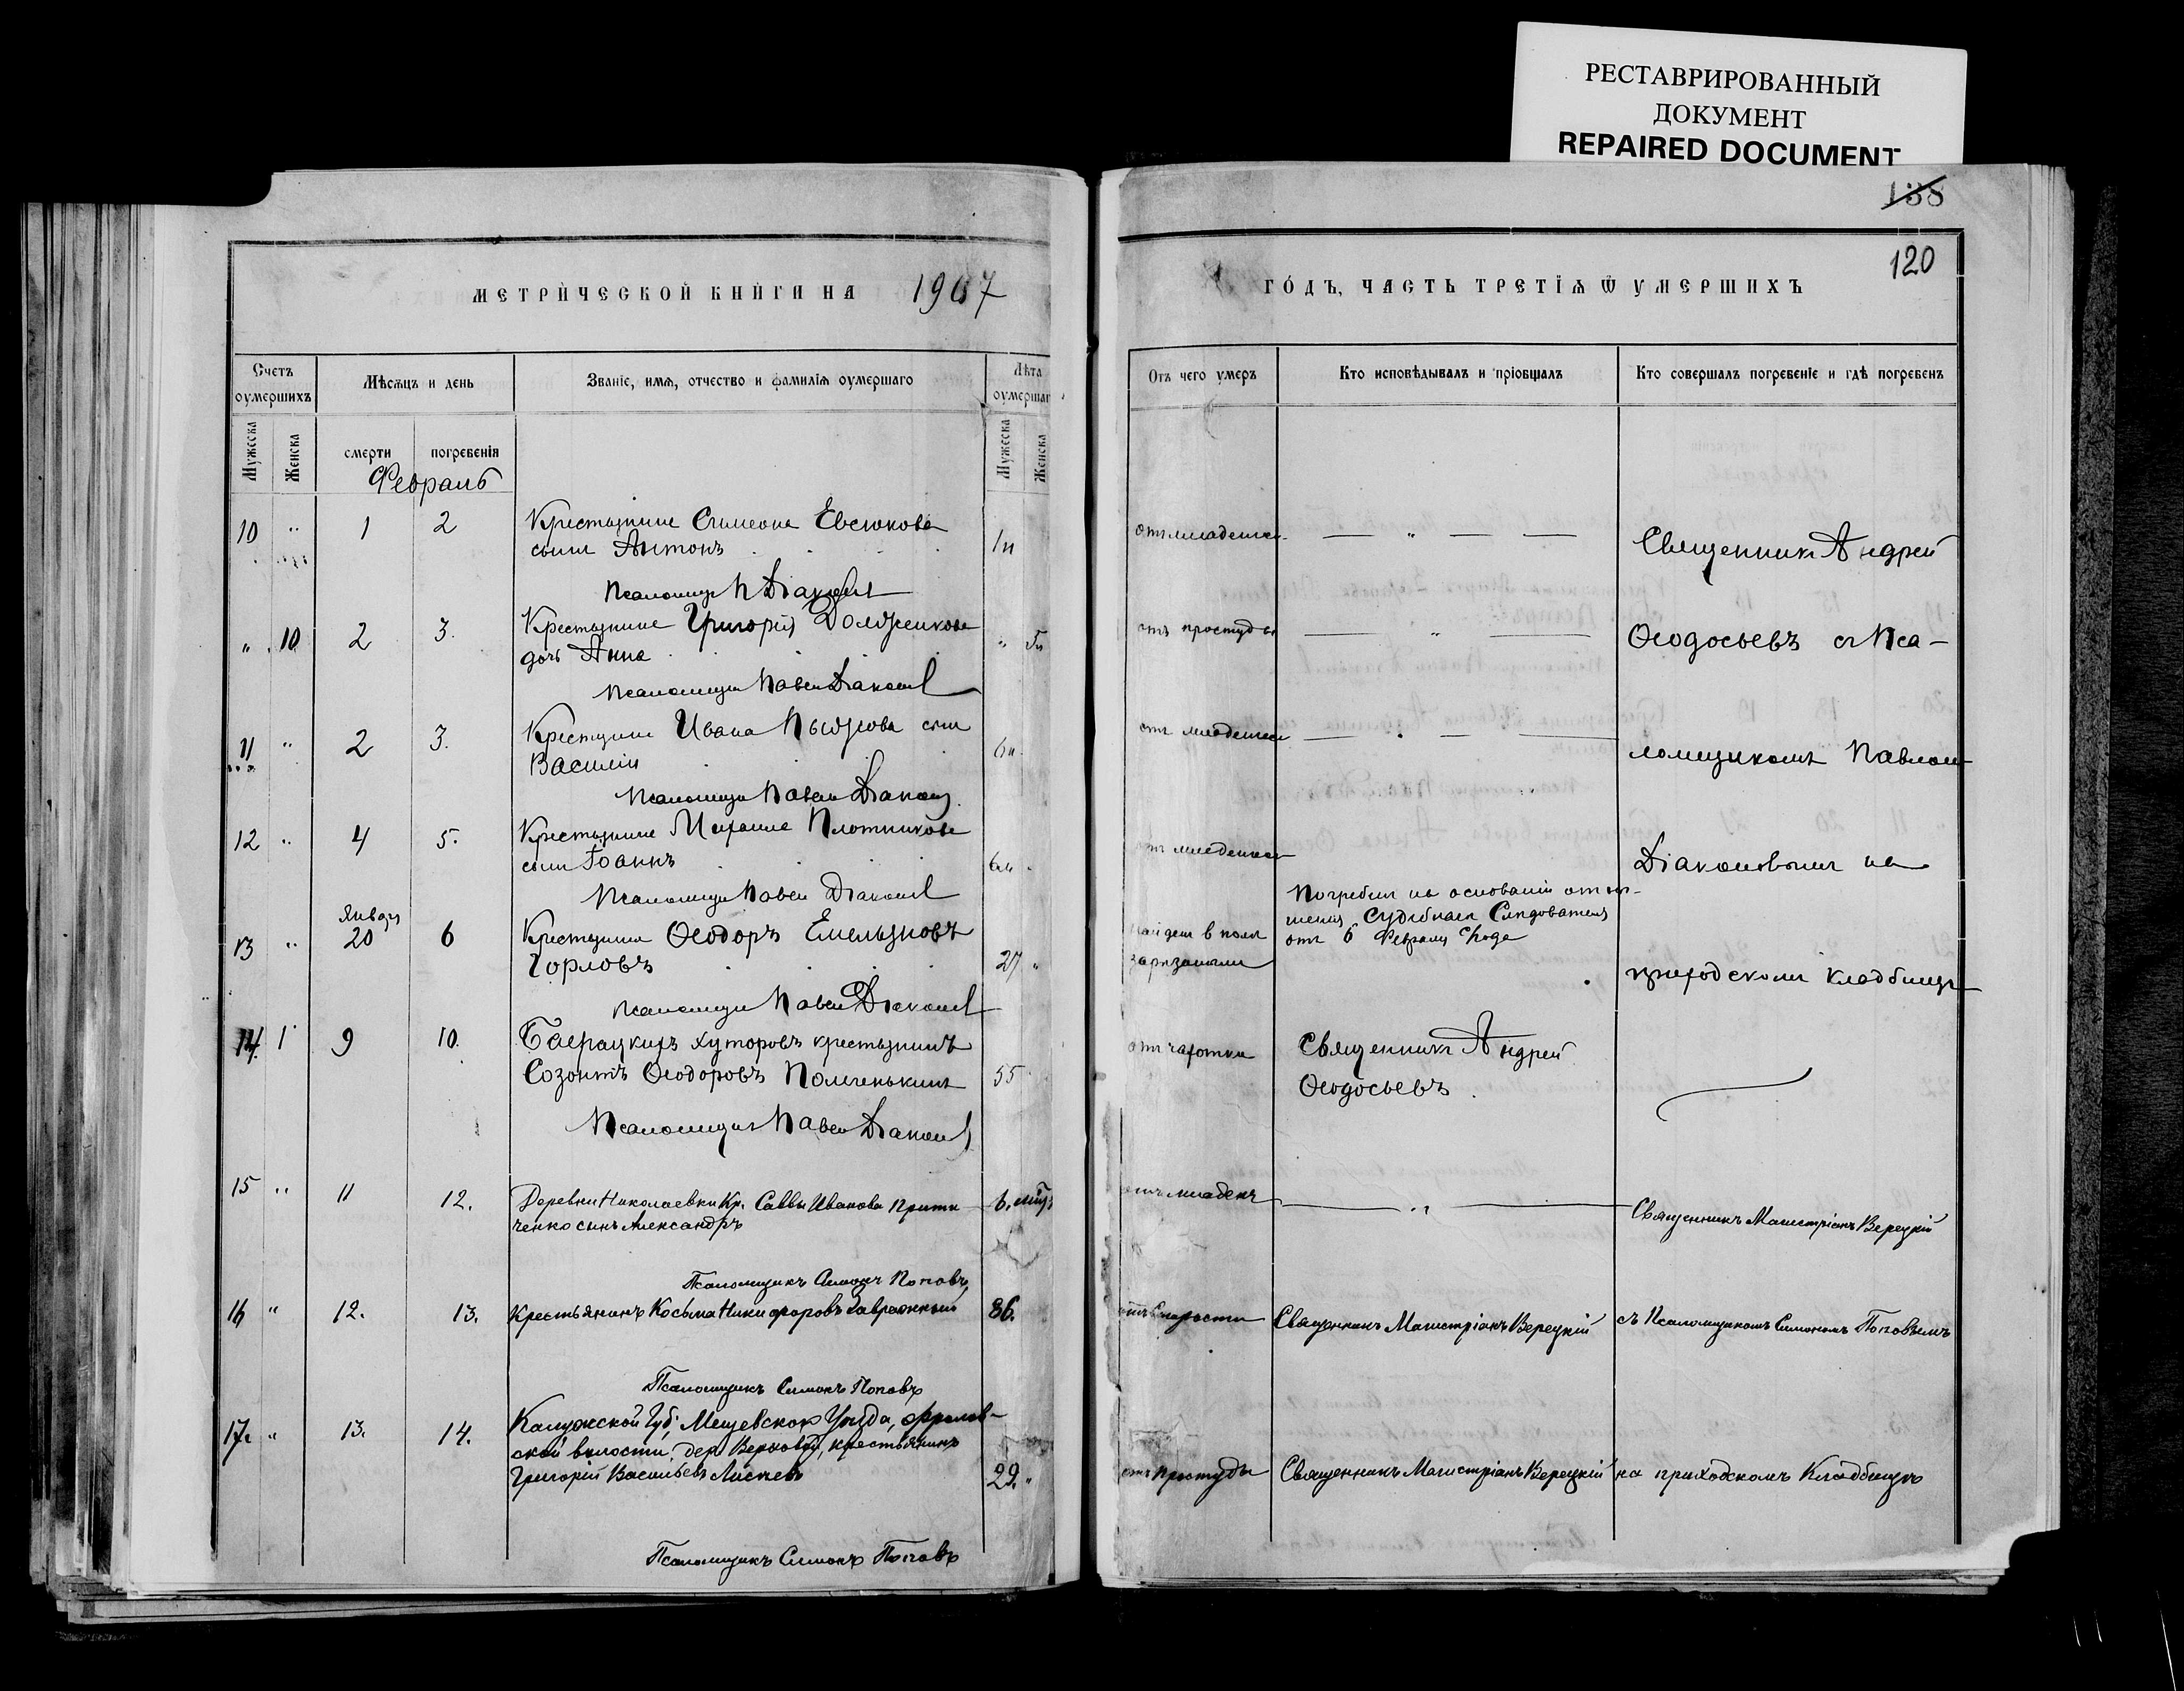 РЕСТАВРИРОВАННЫЙ
ДОКУМЕНТ
REPAIRED DOCUMENT
138
120
МЕТРИЧЕСКОЙ КНИГИ НА 1907
ГОДЪ, ЧАСТЬ ТРЕТІЯ Ѿ УМЕРШИХЪ
Счетъ оумершихъ
Мѣсяцъ и день
Званіе, имя, отчество и фамилія оумершаго
Лѣта оумершаг
Отъ чего умеръ
Кто исповѣдывалъ и пріобщалъ
Кто совершалъ погребеніе и гдѣ погребенъ
Мужеска
Женска
смерти
погребенія
Мужеска
Женска
Февраль
10 " 1 2 Крестьянина Симеона Евсюкова
сынъ Антонъ
Псаломщ П Діаконов
отъ младенчес
Священник Андрей
" 10 2 3. Крестьянина Григорія Долженкова
дочь Анна
Псаломщик Павел Діаконов
отъ простуды
Ѳеодосьевъ съ Пса-
11 " 2 3. Крестьянина Ивана сын
Василій
Псаломщик Павел Діаконов
от младенчес
ломщикомъ Павлом
12 " 4 5. Крестьянина Михаила Плотникова
сынъ Іоаннъ
Псаломщик Павел Діаконов
от младенчес
Діаконовымъ на
13 " Января 20 6 Крестьянинъ Ѳеодоръ Емельяновъ
Горловъ 27 "
Псаломщик Павел Діаконов
найден в поле
зарезаным
Погребен на основаніи отно-
шения Судебнаго Следователя
от 6 Февраля с/года
приходском кладбище
14 1 9 10. Баерацких хуторовъ крестьянинъ
Созонтъ Ѳеодоровъ 55
Псаломщик Павел Діаконов
от чахотки
Священник Андрей
Ѳеодосьевъ
15 " 11 12. Деревни Николаевки Кр. Саввы Иванова Приты
ченко сынъ Александръ 6. мѣс
Псаломщикъ Симонъ Поповъ
отъ младенч
Священникъ Магистріанъ Верецкій
16 " 12. 13. Крестьянинъ Косьма Никифоровъ Завражный 86.
Псаломщикъ Симонъ Поповъ
отъ старости
Священникъ Магистріанъ Верецкій
съ Псаломщикомъ Симономъ Поповымъ
17. " 13. 14. Калужской Губ. Мещевскок Уѣзда, Фролов-
ской волости, дер. Верховой, крестьянинъ
Григорій Васильевъ 29. "
Псаломщикъ Симонъ Поповъ
отъ простуды
Священникъ Магистріанъ Верецкій
на приходскомъ Кладбищѣ